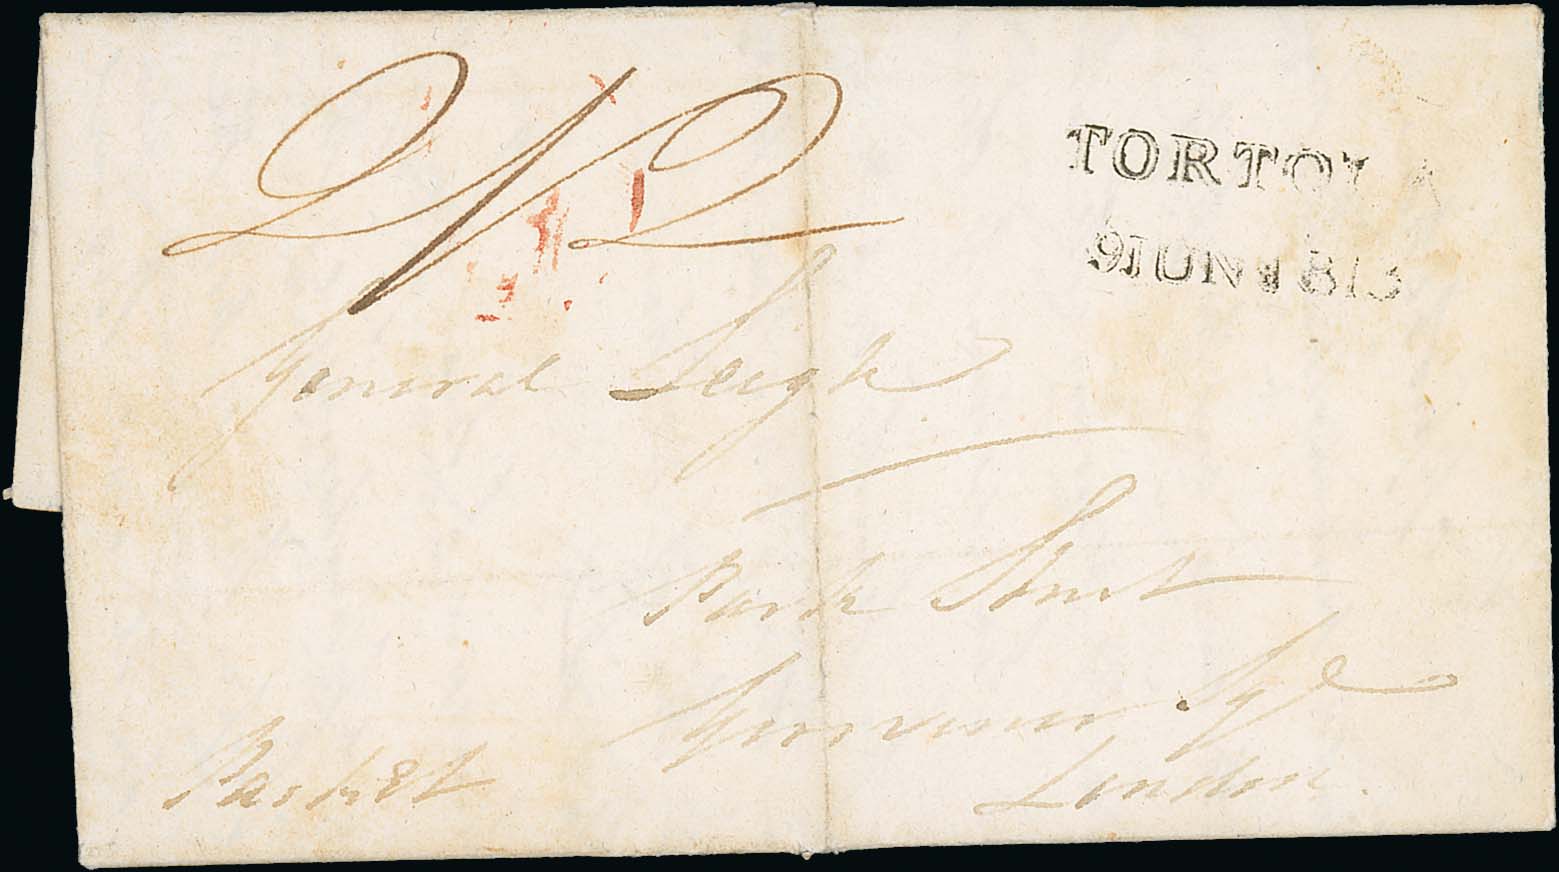 2/2
TORTOLA
9 JUN 1813
General Leigh
Park Street
Grosvenor Sqe
London.
Packet